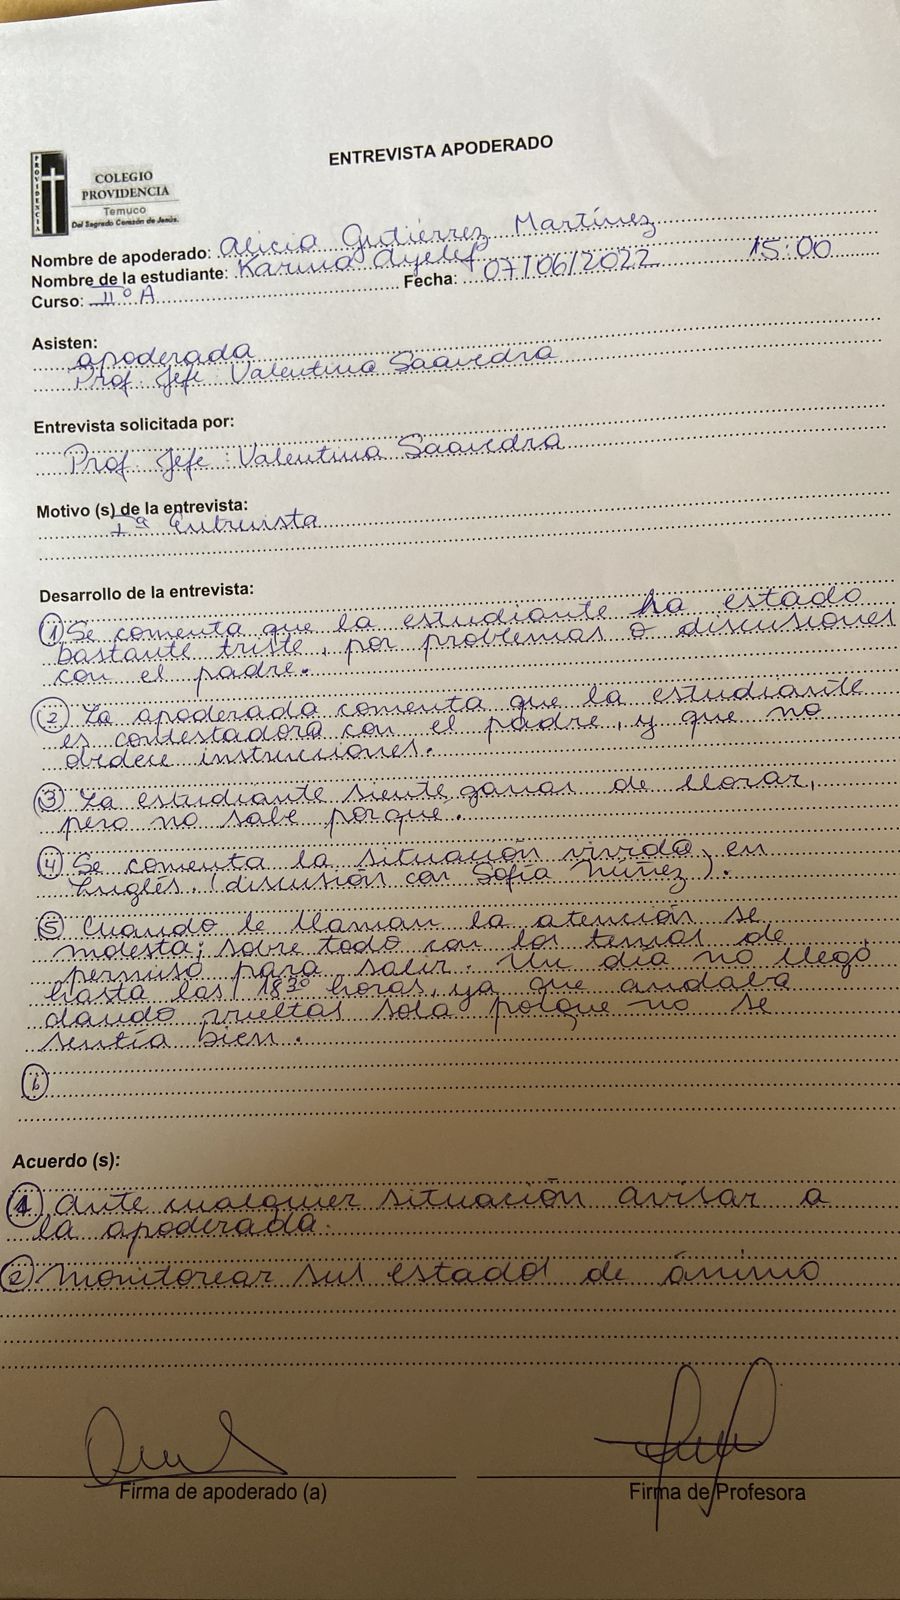 ENTREVISTA APODERADO
PROVIDENCIA
COLEGIO
PROVIDENCIA
Temuco
Del Sagrado Corazón de Jesús.
Nombre de apoderado: Alicia Gutiérrez Martínez
Nombre de la estudiante: Karina Ayelef
Curso: IIº A Fecha: 07/06/2022 15:00
Asisten:
apoderada
Prof. Jefe: Valentina Saavedra
Entrevista solicitada por:
Prof. Jefe: Valentina Saavedra
Motivo (s) de la entrevista:
Iª Entrevista
Desarrollo de la entrevista:
① Se comenta que la estudiante ha estado
bastante triste, por problemas o discusiones
con el padre.
② La apoderada comenta que la estudiante
es contestadora con el padre, y que no
obdece instrucciones.
③ La estudiante siente ganas de llorar,
pero no sabe porque.
④ Se comenta la situación vivida en
Inglés. (discusión con Sofía Núñez).
⑤ Cuando le llaman la atención se
molesta; sobre todo con los temas de
permiso para salir. Un día no llegó
hasta las 18³⁰ horas, ya que andaba
dando vueltas sola porque no se
sentía bien.
⑥
Acuerdo (s):
① Ante cualquier situación avisar a
la apoderada.
② Monitorear sus estados de ánimo
Firma de apoderado (a)
Firma de Profesora